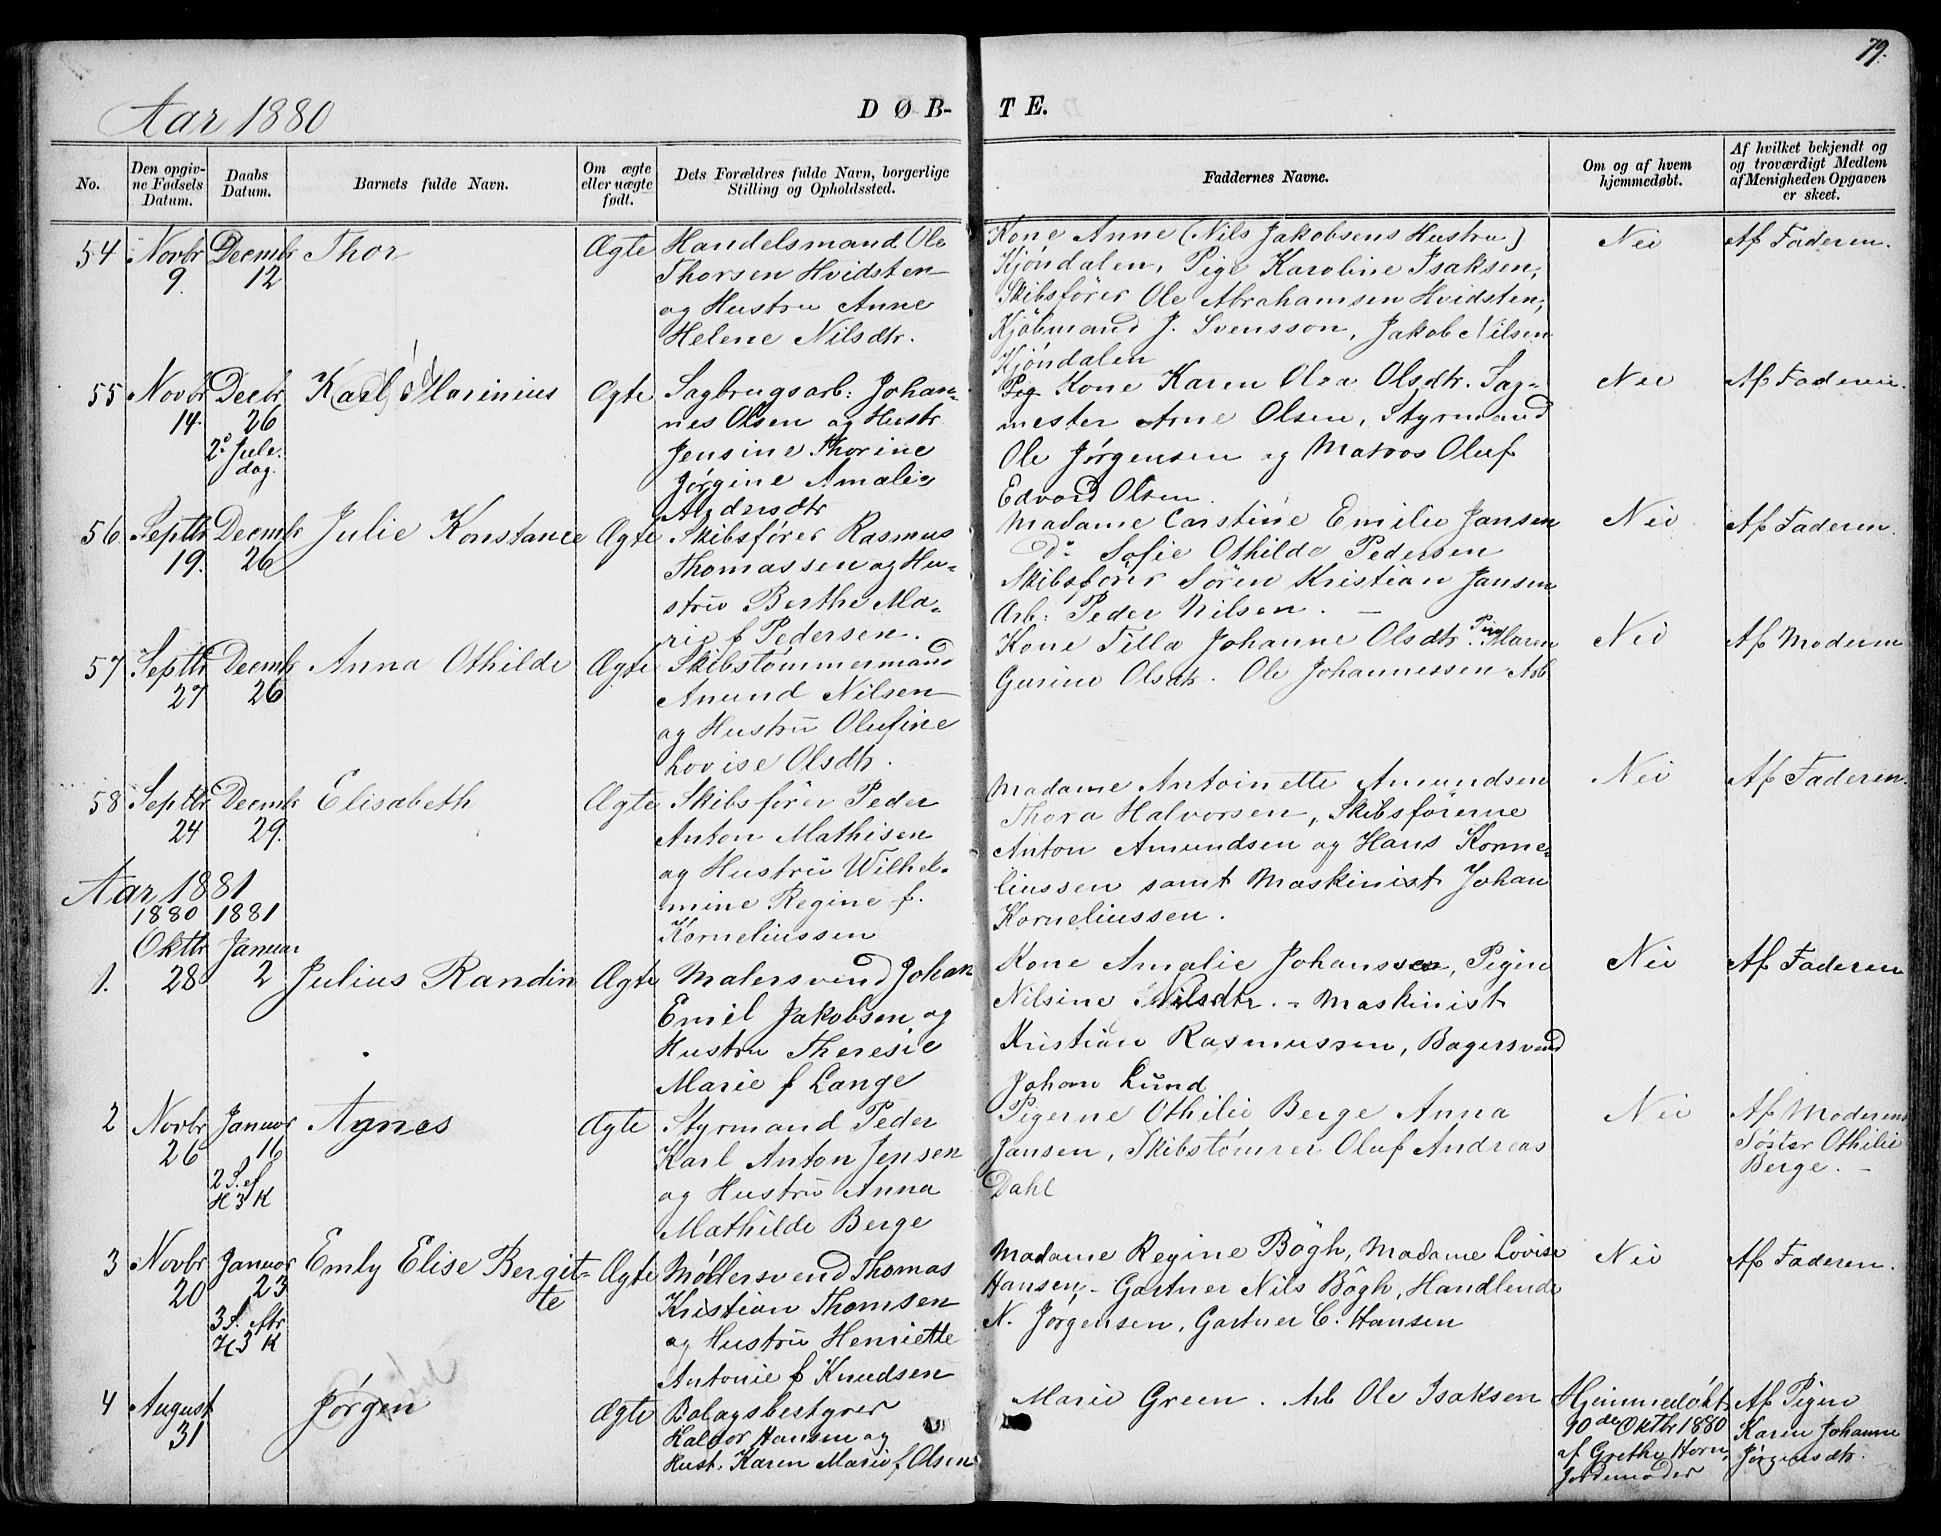 79.
Aar 1880
DØB-TE.
No.
Den opgivne Fødsels Datum.
Daabs Datum.
Barnets fulde Navn.
Om ægte eller uægte født.
Dets Forældres fulde Navn, borgerlige Stilling og Opholdssted.
Faddernes Navne.
Om og af hvem hjemmedøbt.
Af hvilket bekjendt og og troværdigt Medlem af Menigheden Opgaven er skeet.
54 Novbr 9. Decmbr 12 Thor Ægte
Handelsmand Ole
Thorsen Hvidsten
og Hustru Anne
Helene Nilsdtr.
Kone Anne (Nils Jakobsens Hustru)
Kjöndalen, Pige Karoline Isaksen,
Skibsfører Ole Abrahamsen Hvidsten,
Kjöbmand J. Svensson, Jakob Nilsen
Kjöndalen
Nei
Af Faderen.
55 Novbr 14. Decbr 26 2. Juledag. Karl Marinius Ægte
Sagbrugsarb: Johan-
nes Olsen og Hustr
Jensine Thorine
Jørgine Amalie
Andersdtr
Pig Kone Karen Olea Olsdtr. Sag-
mester Arne Olsen, Styrmand
Ole Jørgensen og Matros Oluf
Edvard Olsen.
Nei
Af Faderen.
56 Septbr 19. Decmbr 26 Julie Konstance Ægte
Skibsfører Rasmus
Thomassen og Hu-
stru Berthe Ma-
rie f Pedersen.
Madame Carstine Emilie Jansen
Do Sofie Othilde Pedersen
Skibsfører Sören Kristian Jansen
Arb: Peder Nilsen. —
Nei
Af Faderen.
57 Septbr 27 Decmbr 26 Anna Othilde Ægte
Skibstømmermand
Anund Nilsen
og Hustrū Olufine
Lovise Olsdtr.
Kone Tilla Johanne Olsdtr. Pige Maren
Gurine Olsdtr. Ole Johannessen Arb
Nei
Af Moderen
58 Septbr 24 Decmbr 29. Elisabeth Ægte
Skibsfører Peder
Anton Mathisen
og Hustrū Wilhel-
mine Regine f.
Korneliussen
Madame Antoinette Amundsen
Thora Halvorsen, Skibsførerne
Anton Amundsen og Hans Korne-
liussen samt Maskinist Johan
Korneliussen.
Nei
Af Faderen.
Aar 1881
1880 1881
1. Oktbr 28 Januar 2 Julius Randin Ægte
Malersvend Johan
Emil Jakobsen og
Hustru Theresie
Marie f Lange
Kone Amalie Johanssen, Pigen
Nilsine Nilsdtr. - Maskinist
Kristian Rasmussen, Bagersvend
Johan Lund
Nei
Af Faderen
2 Novbr 26 Januar 16 2 S. ef H 3 K Agnes Ægte
Styrmand Peder
Karl Anton Jensen
og Hustrū Anna
Mathilde Berge
Pigerne Othilie Berge Anna
Jansen, Skibstømrer Oluf Andreas
Dahl
Nei
Af Moderens
Søster Othilie
Berge. —
3 Novbr 20 Januar 23 3 S. eftr H 3 K Emly Elise Bergit-
te Ægte
Møllersvend Thomas
Kristian Thomsen
og Hustrū Henriette
Antonie f Knudsen
Madame Regine Bögh, Madame Lovise
Hansen, - Gartner Nils Bögh, Handlende
N. Jørgensen, Gartner C. Hansen
Nei
Af Faderen.
4 August 31 Jørgen Ægte
Bolagsbestyrer
Halvor Hansen og
Hust. Karen Marie f Olsen
Marie Green. Arb Ole Isaksen
Hjemmedøbt
10de Oktbr 1880
af Grethe Horn,
Jordemoder
Af Pigen
Karen Johanne
Jørgensdtr.